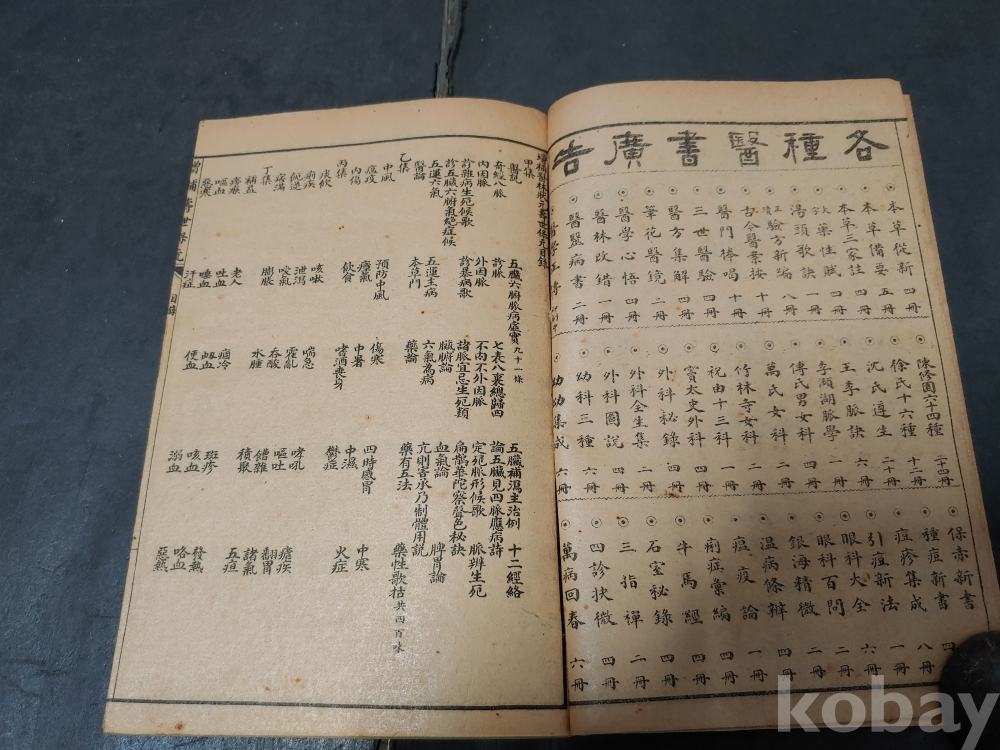 各種醫書廣告
本草從新 四冊
本草備要 五冊
本草三家註 四冊
藥性賦 一冊
湯頭歌訣 一冊
驗方新編 八冊
古今醫案按 十冊
醫門棒喝 十冊
三世醫驗 四冊
醫方集解 四冊
筆花醫鏡 二冊
醫學心悟 四冊
醫林改錯 一冊
醫盬病書 二冊
陳修園六十四種 二十四冊
徐氏十六種 十二冊
沈氏遵生 二十冊
王李脈訣 六冊
李瀕湖脈學 一冊
傅氏男女科 四冊
萬氏女科 二冊
竹林寺女科 一冊
祝由十三科 二冊
竇太史外科 四冊
外科秘錄 四冊
外科全生集 二冊
外科圖說 四冊
幼科三種 一冊
幼幼集成 六冊
保赤新書 四
種痘新書 八冊
痘疹集成 四冊
引痘新法 一冊
眼科大全 六冊
眼科百問 二冊
銀海精微 二冊
溫病條辨 四冊
瘟疫論 二冊
痢症彙編 四冊
牛馬經 四冊
石室秘錄 六冊
三指禪 二冊
四診抉微 四冊
萬病回春 六冊
甲集
醫說 五臟六腑脈病虛實九十一條 五臟補瀉主治例 十二經絡
奇經八脈 診脈 七表八裏總歸四 論五臟見四脈應病詩
內因脈 外因脈 不內不外因脈 定死脈形候歌 脈辨生死
診雜病生死候歌 診暴病歌 諸脈宜忌生死類 扁鵲華陀察聲色秘訣
診五臟六腑氣絕症候 臟腑論 血氣論 脾胃論
五運六氣 五運主病 六氣為病 亢則害承乃制體用說
醫論 本草門 藥論 藥有五法 藥性歌括共四百味
乙集
中風 預防中風 傷寒 四時感冒 中寒
瘟疫 瘧氣 中暑 中濕 火症
內傷 飲食 嗜酒喪身 鬱症
丙集
痰飲 咳嗽 喘急 哮吼 瘧疾
痢疾 泄瀉 霍亂 嘔吐 翻胃
呃逆 噯氣 吞酸 嘈雜 諸氣
痞滿 膨脹 水腫 積聚 五疸
丁集
補益 老人 痼冷 斑疹 發熱
吐血 衄血 咳血 咯血
嘔血 唾血 便血 溺血 惡熱
惡寒 汗症
目錄
kobay